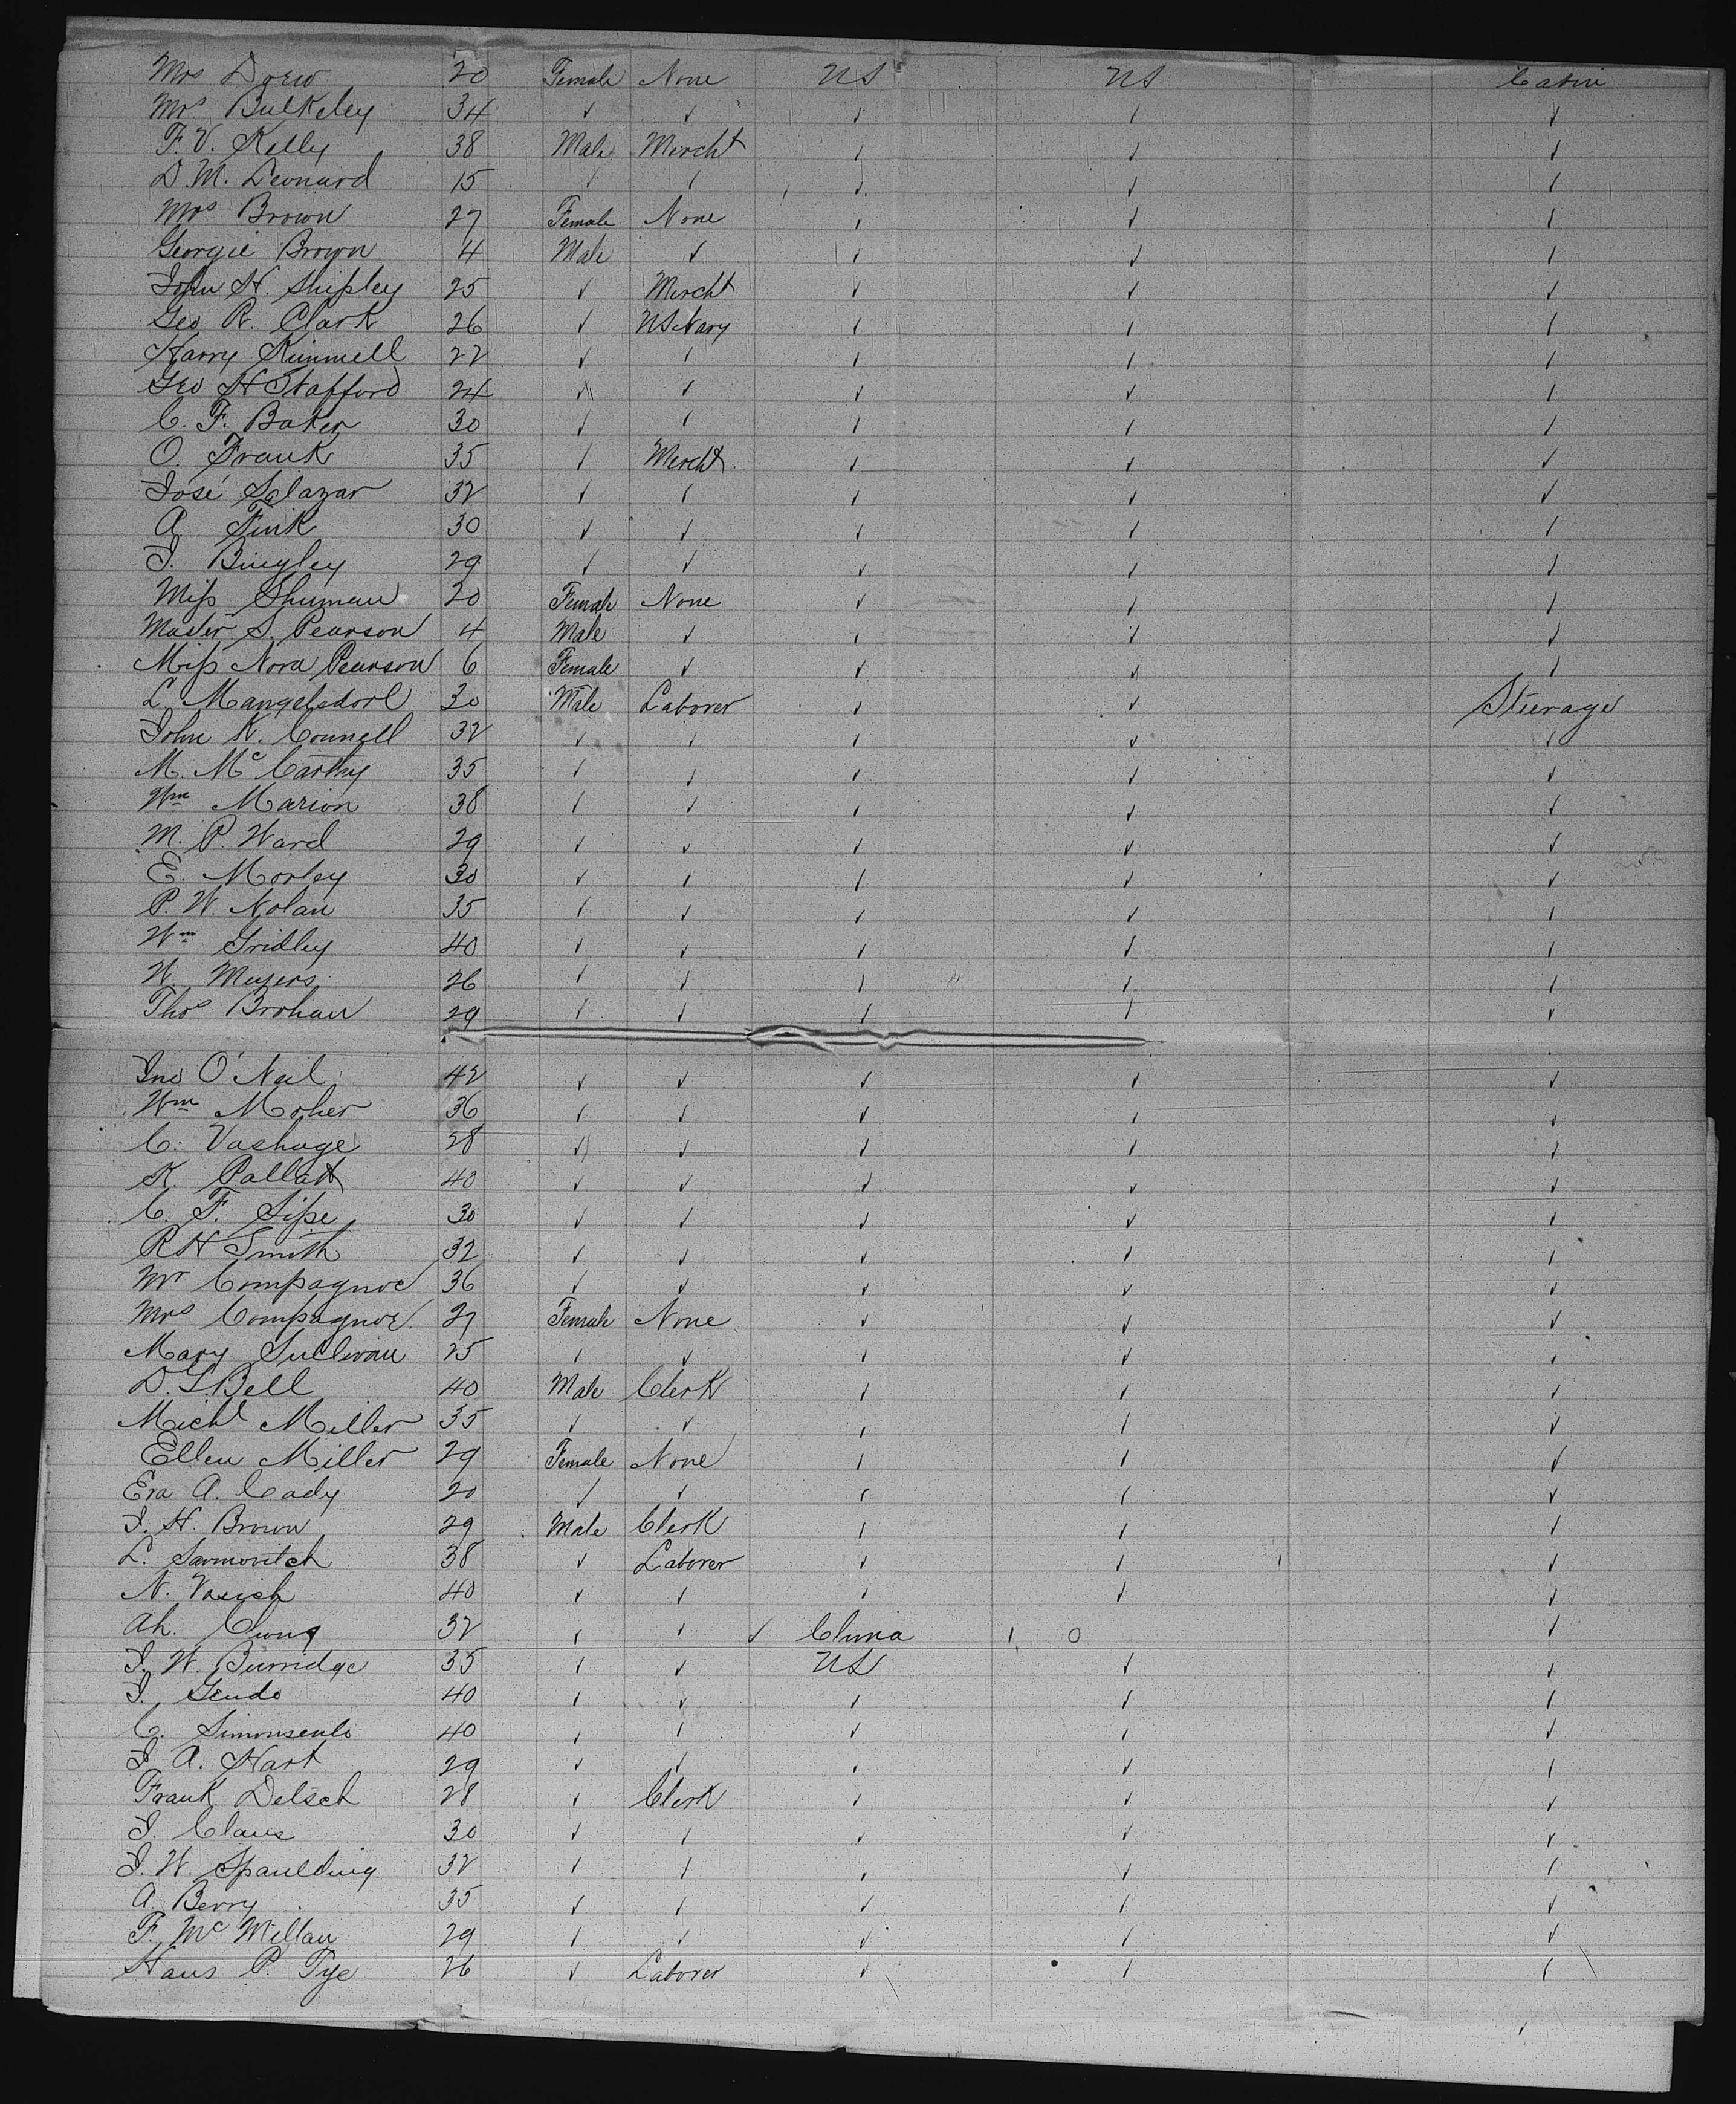 Mrs Drew 20 Female None US US Cabin
Mrs Bulkeley 34 ✓ ✓ ✓ ✓ ✓
F. V. Kelly 38 Male Mercht ✓ ✓ ✓
D. M. Leonard 15 ✓ ✓ ✓ ✓ ✓
Mrs Brown 27 Female None ✓ ✓ ✓
Georgie Brown 4 Male ✓ ✓ ✓ ✓
John H. Shipley 25 ✓ Mercht ✓ ✓ ✓
Geo R. Clark 26 ✓ US Navy ✓ ✓ ✓
Harry Kimmell 22 ✓ ✓ ✓ ✓ ✓
Geo H Stafford 24 ✓ ✓ ✓ ✓ ✓
C. F. Baker 30 ✓ ✓ ✓ ✓ ✓
O. Frank 35 ✓ Mercht ✓ ✓ ✓
José Salazar 32 ✓ ✓ ✓ ✓ ✓
A Fink 30 ✓ ✓ ✓ ✓ ✓
J. Bingley 29 ✓ ✓ ✓ ✓ ✓
Miss Shuman 20 Female None ✓ ✓ ✓
Master S. Pearson 4 Male ✓ ✓ ✓ ✓
Miss Nora Pearson 6 Female ✓ ✓ ✓ ✓
L. Mangelsdorl 30 Male Laborer ✓ ✓ Steerage
John K. Connell 32 ✓ ✓ ✓ ✓ ✓
M. McCarthy 35 ✓ ✓ ✓ ✓ ✓
Wm Marion 38 ✓ ✓ ✓ ✓ ✓
M. P. Ward 29 ✓ ✓ ✓ ✓ ✓
E. Morley 30 ✓ ✓ ✓ ✓ ✓
P. W. Nolan 35 ✓ ✓ ✓ ✓ ✓
Wm Gridley 40 ✓ ✓ ✓ ✓ ✓
W Meyers 26 ✓ ✓ ✓ ✓ ✓
Thos Brohan 29 ✓ ✓ ✓ ✓ ✓
Jno O'Neil 42 ✓ ✓ ✓ ✓ ✓
Wm Moher 36 ✓ ✓ ✓ ✓ ✓
C. Vashage 28 ✓ ✓ ✓ ✓ ✓
K. Pallatt 40 ✓ ✓ ✓ ✓ ✓
C. F. Sipe 30 ✓ ✓ ✓ ✓ ✓
R H Smith 32 ✓ ✓ ✓ ✓ ✓
Mr Compagnoe 36 ✓ ✓ ✓ ✓ ✓
Mrs Compagnoe 27 Female None ✓ ✓ ✓
Mary Sullivan 25 ✓ ✓ ✓ ✓ ✓
D. S. Bell 40 Male Clerk ✓ ✓ ✓
Michl Miller 35 ✓ ✓ ✓ ✓ ✓
Ellen Miller 29 Female None ✓ ✓ ✓
Eva A. Cady 20 ✓ ✓ ✓ ✓ ✓
J. H. Brown 29 Male Clerk ✓ ✓ ✓
L. Sarmovitch 38 ✓ Laborer ✓ ✓ ✓
N. Vasich 40 ✓ ✓ ✓ ✓ ✓
Ah. Cung 32 ✓ ✓ ✓ China 1 0 ✓
J. W. Burridge 35 ✓ ✓ US ✓ ✓
J. Gendo 40 ✓ ✓ ✓ ✓ ✓
C. 40 ✓ ✓ ✓ ✓ ✓
J. A. Hart 29 ✓ ✓ ✓ ✓ ✓
Frank Delsch 28 ✓ Clerk ✓ ✓ ✓
J. Claus 30 ✓ ✓ ✓ ✓ ✓
J. W. Spaulding 32 ✓ ✓ ✓ ✓ ✓
A. Berry 35 ✓ ✓ ✓ ✓ ✓
F. McMillan 29 ✓ ✓ ✓ ✓ ✓
Hans P. Tye 26 ✓ Laborer ✓ ✓ ✓